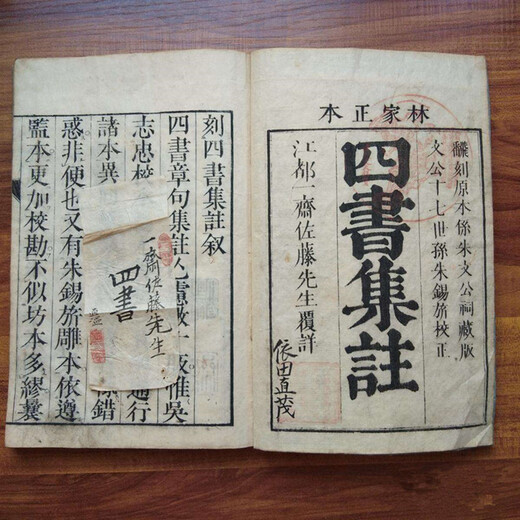 林家正本
飜刻原本係朱文公祠藏版
文公十七世孫朱錫旂校正
四書集註
江都一齋佐藤先生覆詳
依田直茂
刻四書集註叙
四書章句集註
惟吳
志忠校
通行
諸本異
錯
惑非便也又有朱錫旂雕本依遵
監本更加校勘不似坊本多謬囊
一齋佐藤先生
四書